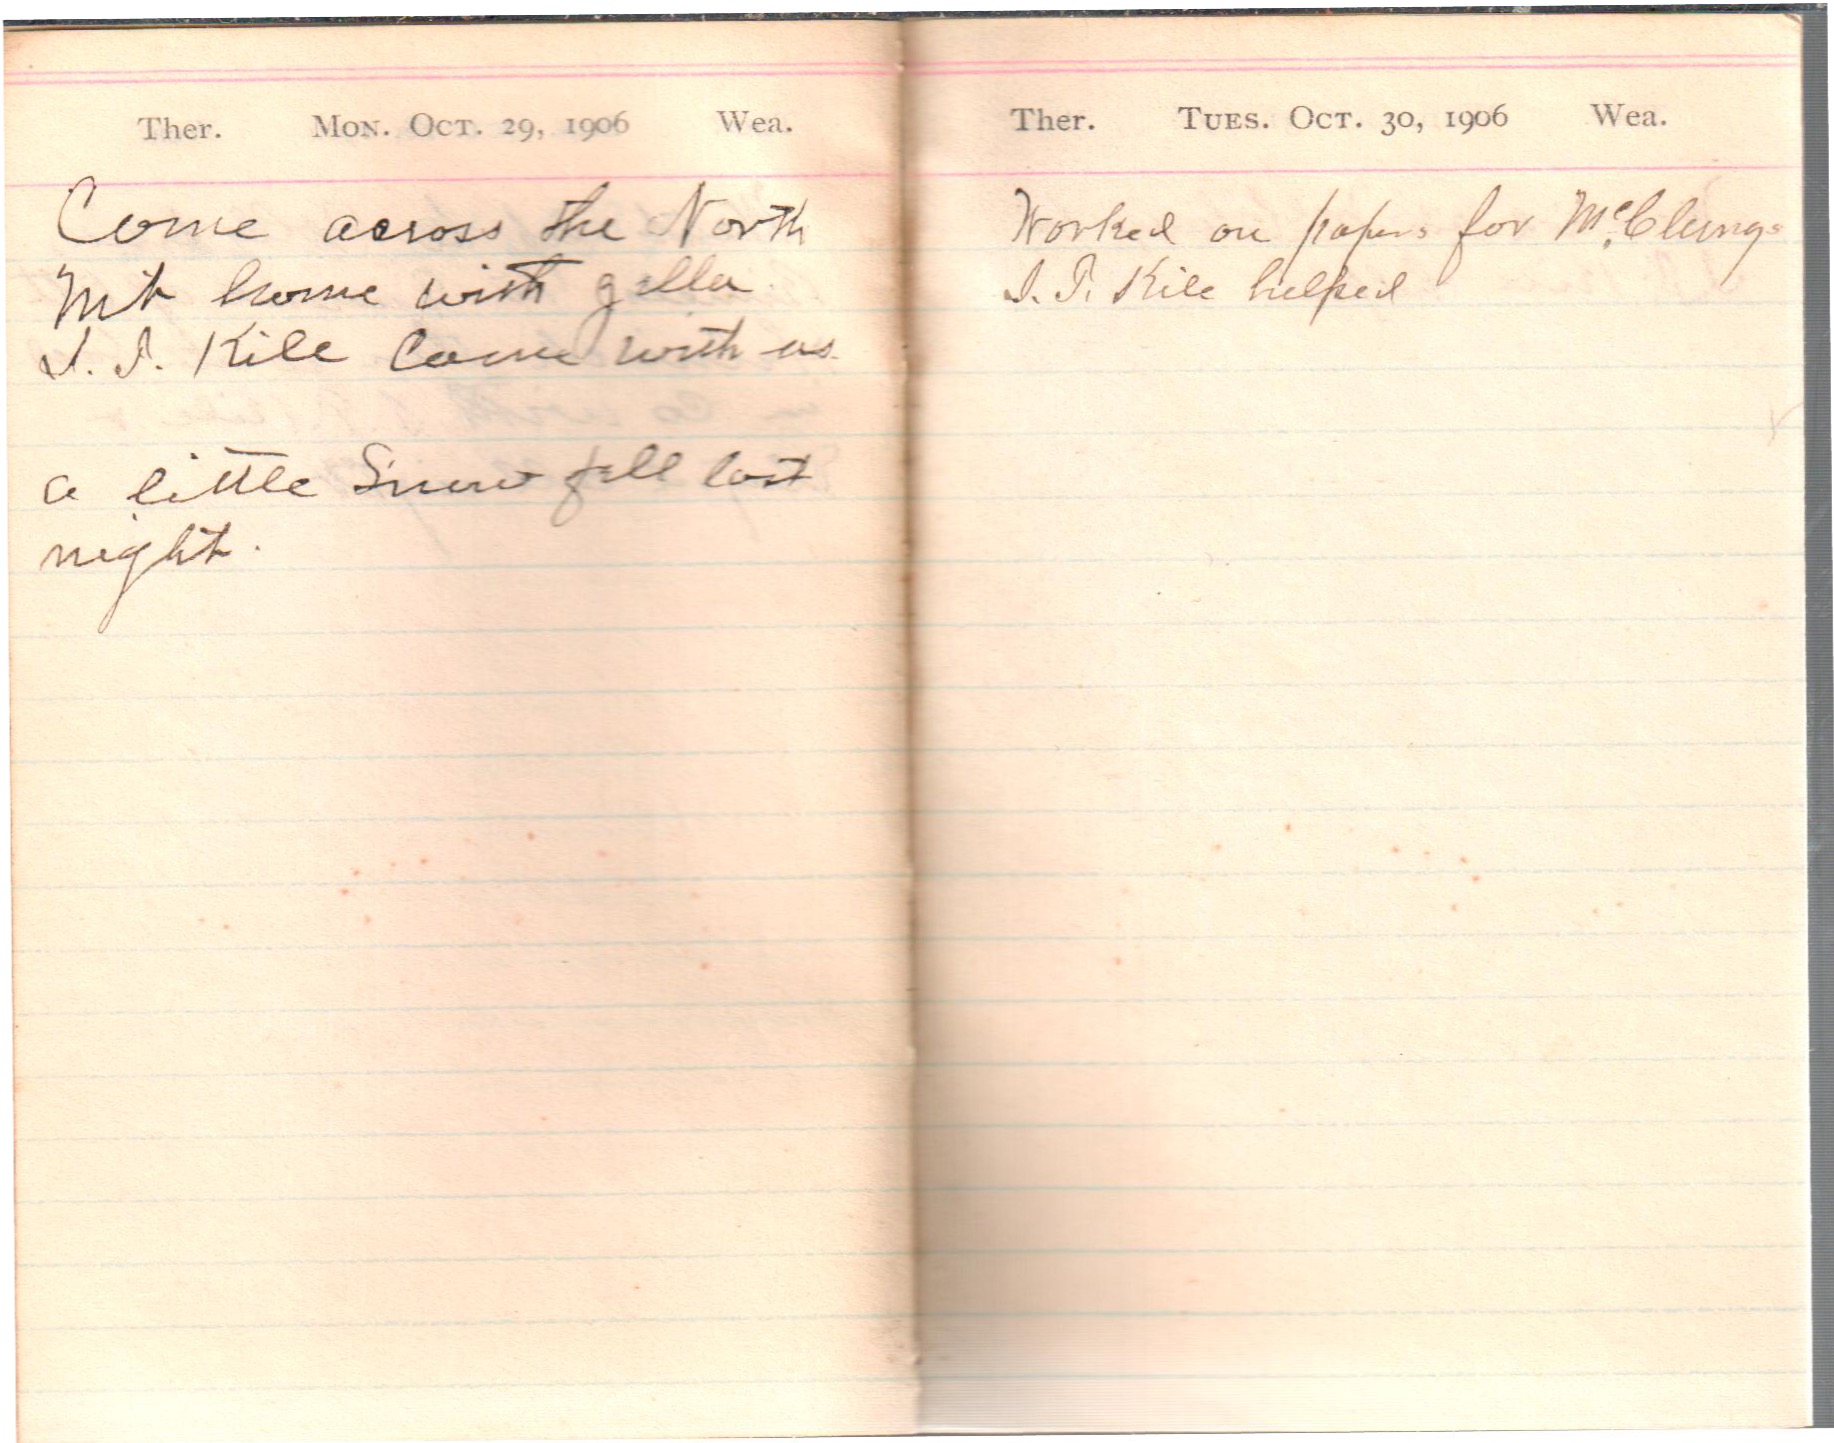 Ther. Mon. Oct. 29, 1906 Wea.
Come across the North
Mt home with
Kile Come with us
a little Snow fell last
night.
Ther. Tues. Oct. 30, 1906 Wea.
Worked on papers for McClungs
Kile helped